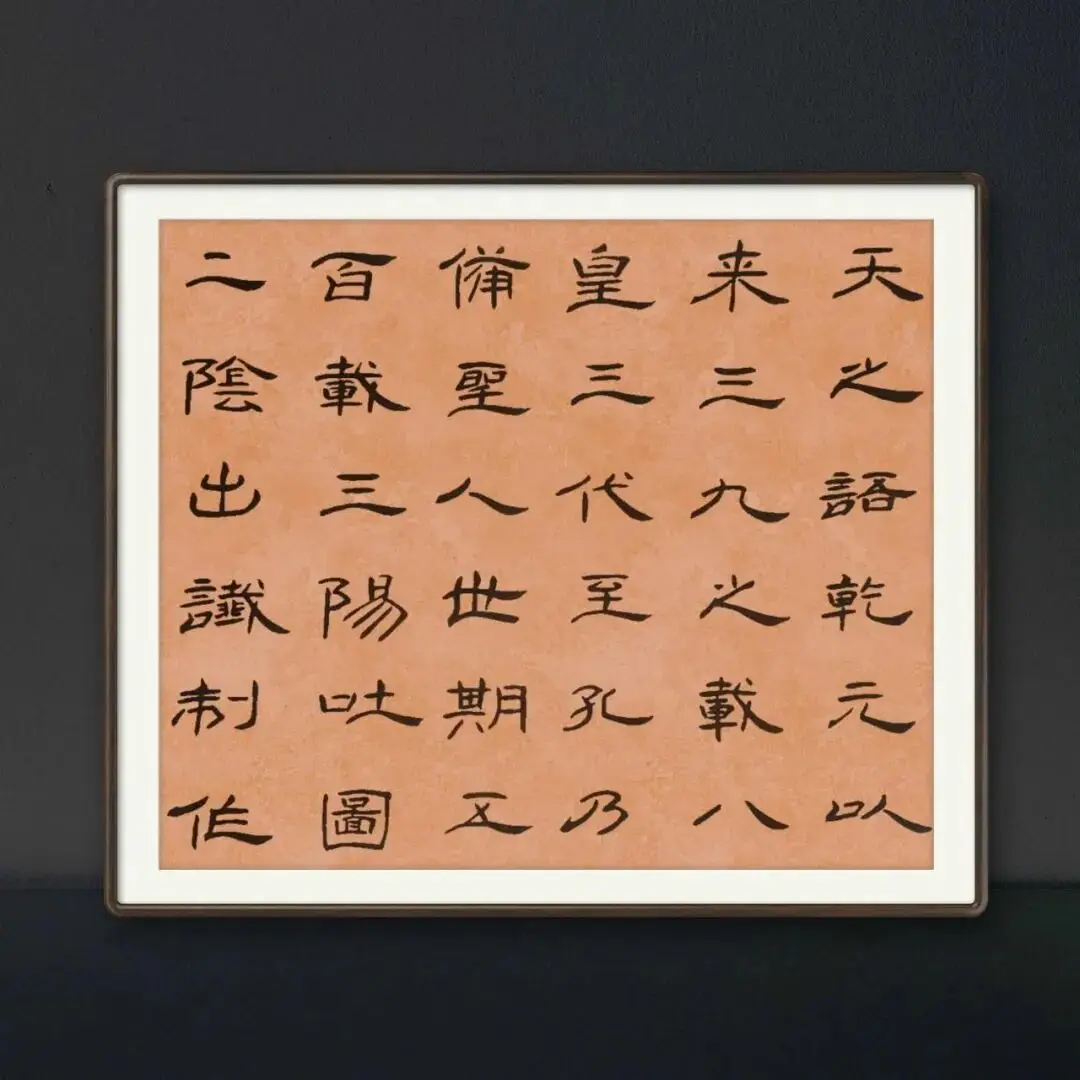 天之語乾元以
来三九之載八
皇三代至孔乃
備聖人世期五
百載三陽吐圖
二陰出讖制作